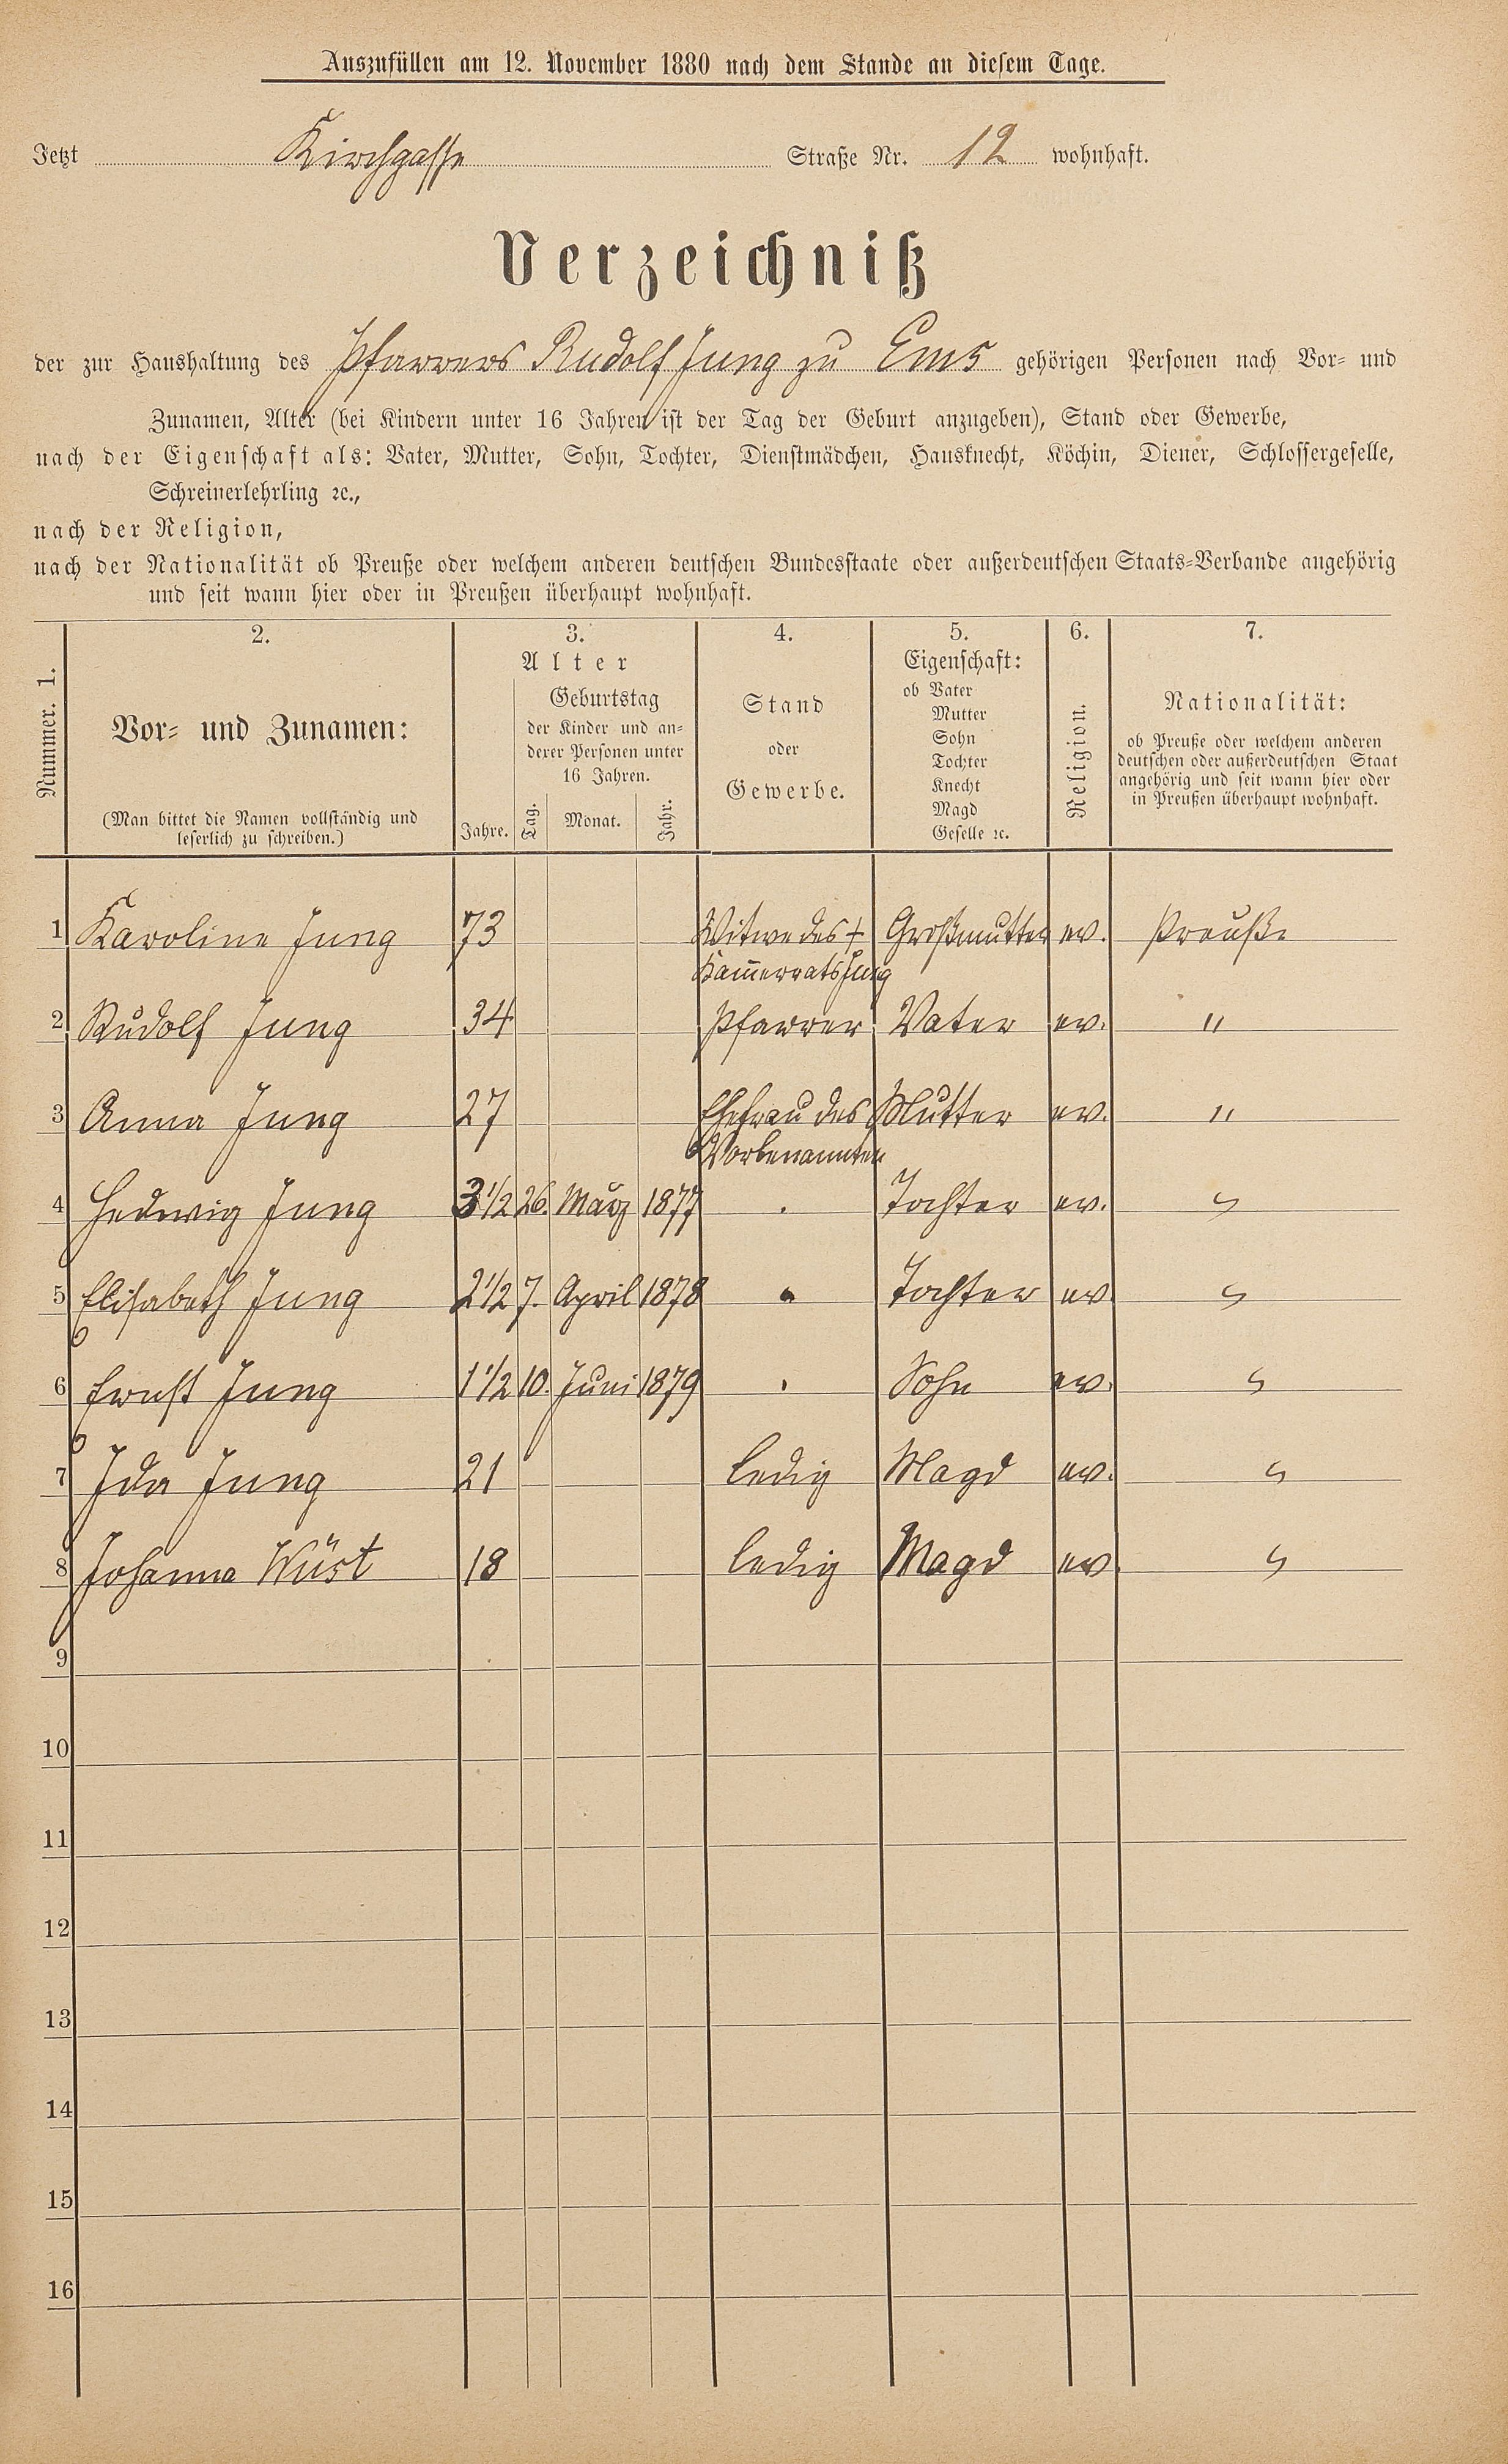 Auszufüllen am 12. November 1880 nach dem Stande an diesem Tage.
Jetzt Kirchgasse Straße Nr. 12 wohnhaft.
Verzeichniß
der zur Haushaltung des Pfarrers Rudolf Jung zu Ems gehörigen Personen nach Vor- und
Zunamen, Alter (bei Kindern unter 16 Jahren ist der Tag der Geburt anzugeben), Stand oder Gewerbe,
nach der Eigenschaft als: Vater, Mutter, Sohn, Tochter, Dienstmädchen, Hausknecht, Köchin, Diener, Schlossergeselle,
Schreinerlehrling ꝛc.,
nach der Religion,
nach der Nationalität ob Preuße oder welchem anderen deutschen Bundesstaate oder außerdeutschen Staats-Verbande angehörig
und seit wann hier oder in Preußen überhaupt wohnhaft.
Nummer. 1.
2.
Vor- und Zunamen:
(Man bittet die Namen vollständig und
leserlich zu schreiben.)
3.
Alter
Geburtstag
der Kinder und an-
derer Personen unter
16 Jahren.
Jahre. Tag. Monat. Jahr.
4.
Stand
oder
Gewerbe.
5.
Eigenschaft:
ob Vater
Mutter
Sohn
Tochter
Knecht
Magd
Geselle ꝛc.
6.
Religion.
7.
Nationalität:
ob Preuße oder welchem anderen
deutschen oder außerdeutschen Staat
angehörig und seit wann hier oder
in Preußen überhaupt wohnhaft.
1 Karoline Jung 73 Witwe des + Großmutter ev. Preuße
Kam̅errats Jung
2 Rudolf Jung 34 Pfarrer Vater ev. "
3 Anna Jung 27 Ehefrau des Mutter ev. "
Vorbenannten
4 Hedwig Jung 3 1/2 26. März 1877 . Tochter ev. "
5 Elisabeth Jung 2 1/2 7. April 1878 . Tochter ev. "
6 Ernst Jung 1 1/2 10. Juni 1879 . Sohn ev. "
7 Ida Jung 21 ledig Magd ev. "
8 Johanna Wüst 18 ledig Magd ev. "
9
10
11
12
13
14
15
16